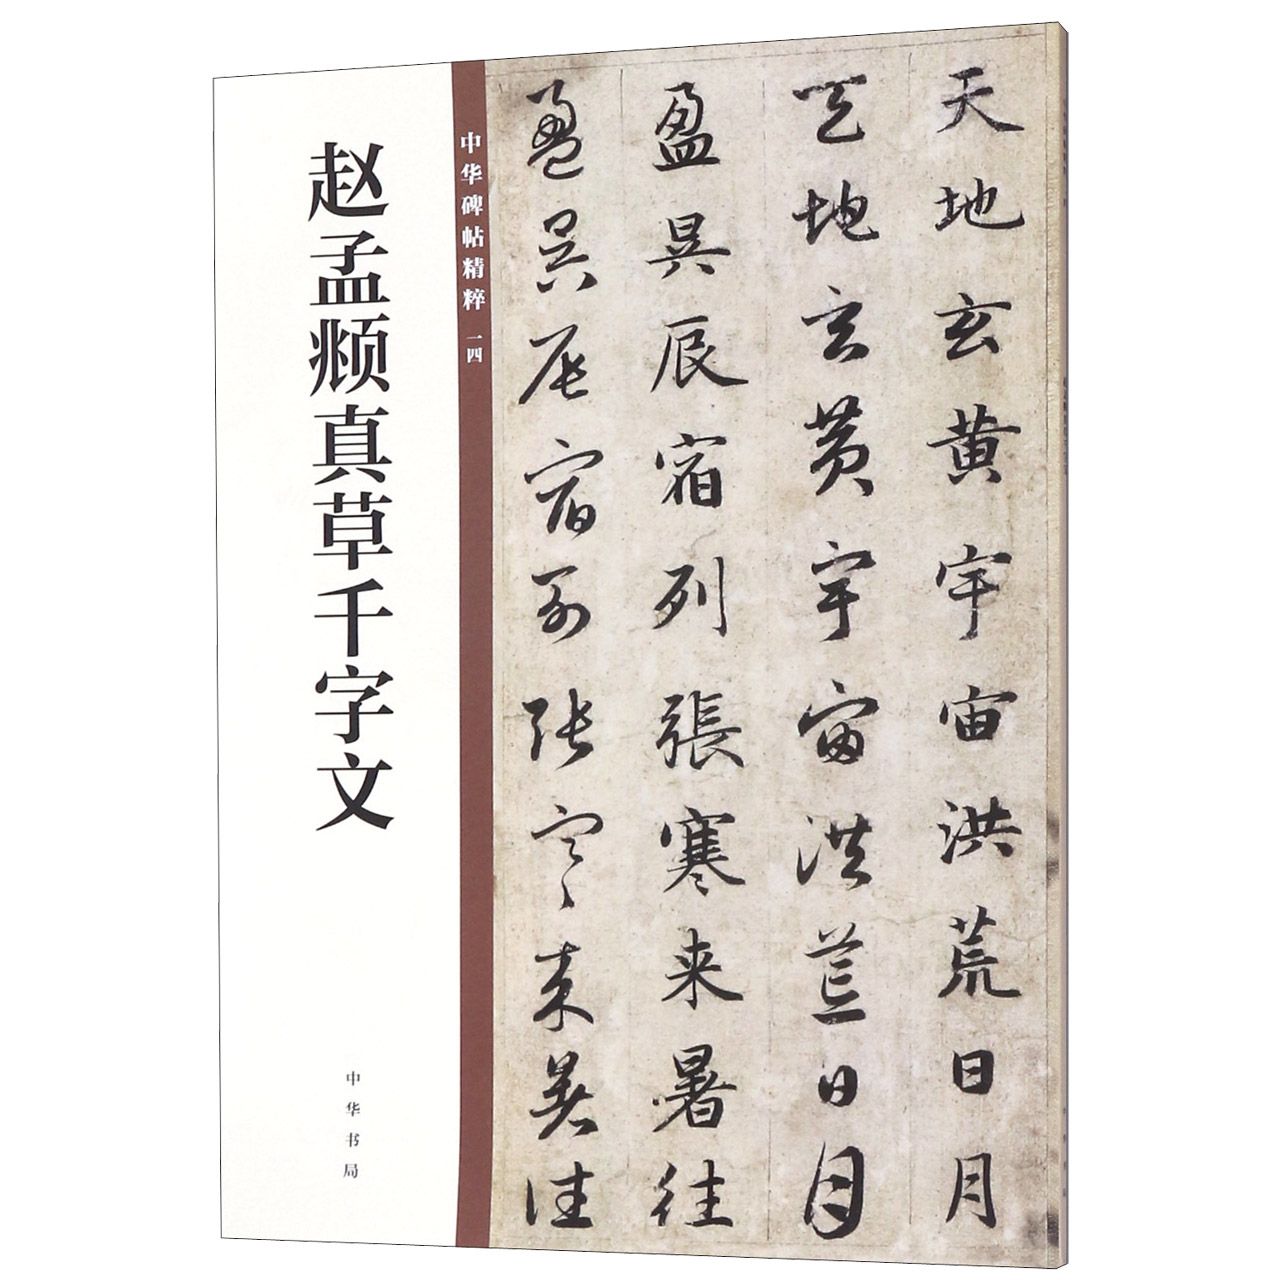 赵孟𫖯真草千字文
中华书局
中华碑帖精粹 一四
天地玄黄宇宙洪荒日月
天地玄黄宇宙洪荒日月
盈昃辰宿列張寒来暑往
盈昃辰宿列張寒来暑往